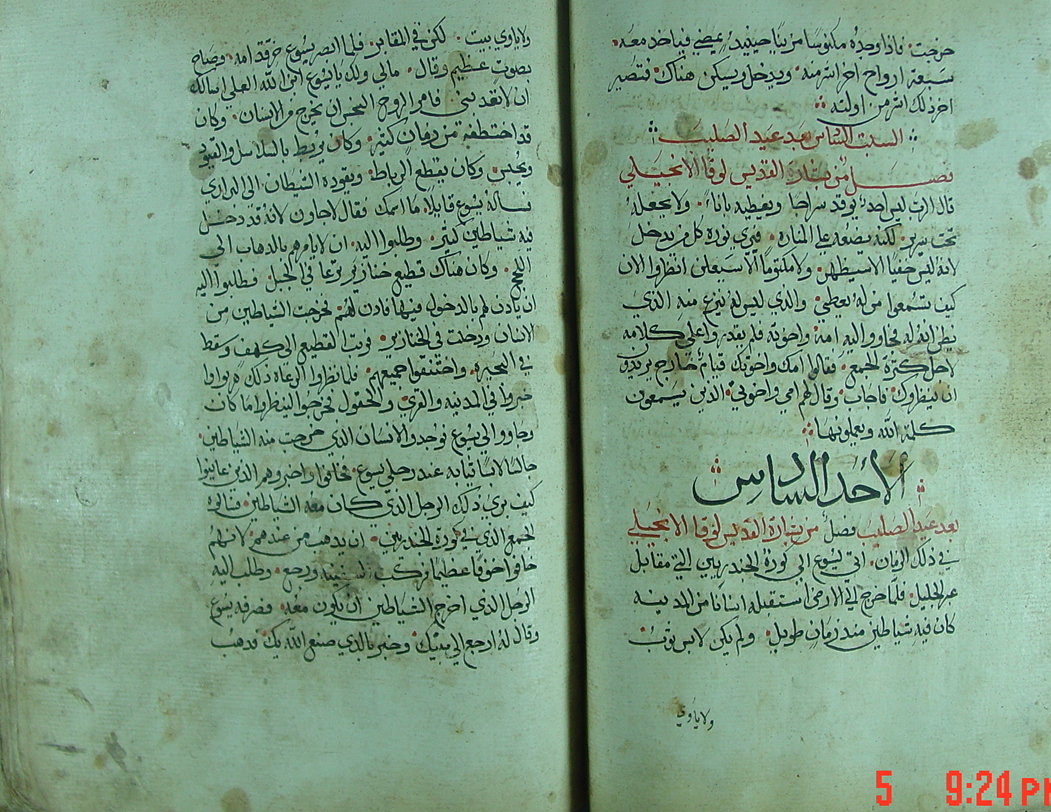 خرجت. فاذا وجده مكنوسا مزينا حينيد يمضي فياخد معه.
سبعة ارواح اخر اشر منه. ويدخل ويسكن هناك. فتصير
اخر ذلك اشر من اولته
السبت السادس بعد عيد الصليب
فصل من بشارة القديس لوقا الانجيلي
قال الرب ليس احد يوقد سراجا ويغطيه باناء. ولا يجعله
تحت سرير. لكنه يضعه على المنارة. فيرى نوره كل من يدخل
لانه ليس خفيا الا سيظهر. ولا مكتوما الا سيعلن انظروا الان
كيف تسمعوا من له يعطى. والذي ليس له ينزع منه الذي
يظن انه له فجاووا اليه امه واخوته فلم يقدروا على كلامه
لاجل كثرة الجمع. فقالوا امك واخوتك قيام خارج يريدون
ان ينظروك. فاجاب. وقال لهم امي واخوتي الذين يسمعون
كلمة الله ويعملون بها
الاحد السادس
بعد عيد الصليب فصل من بشارة القديس لوقا الانجيلي
في ذلك الزمان. اتى يسوع الى كورة الجندريين التي مقابل
عبر الجليل. فلما خرج الى الارض استقبله انسانا من المدينه
كان فيه شياطين مند زمان طويل. ولم يكن لابس ثوب
ولا ياوي
ولا ياوي بيت. لكن في المقابر. فلما ابصر يسوع خر قدامه. وصاح
بصوت عظيم وقال. مالي ولك يا يسوع ابن الله العلي اسالك
ان لا تعدبني. فامر الروح النجس ان يخرج من الانسان. وكان
قد اختطفه من زمان كثير. وكان يربط بالسلاسل والقيود
ويحبس. وكان يقطع الرباط. ويقوده الشيطان الى البراري
فساله يسوع قايلا. ما اسمك فقال لاجاون لانه قد دخل
فيه شياطين كثير. وطلبوا اليه. ان لا يامرهم بالدهاب الى
اللجج وكان هناك قطيع خنازير يرعا في الجبل. فطلبوا اليه
ان يادن لهم بالدخول فيها فادن لهم فخرجت الشياطين من
الانسان ودخلت في الخنازير. فوثب القطيع الى كهف وسقط
في البحيره. واختنقوا جميعهم. فلما نظروا الرعاه ذلك هربوا
خبروا في المدينه والقرى. والحقول فخرجوا لينظروا ما كان
وجاووا الى يسوع فوجدوا الانسان الذي خرجت منه الشياطين.
جالسا لابسا ثيابه عند رجلي يسوع. فخافوا واخبروهم الذين عاينوا
كيف بري ذلك الرجل الذي كان معه الشياطين. فسالوه
الجمع الذي في كورة الجندريين. ان يدهب من عندهم لانهم
خافوا خوفا عظيما فركب السفينه ورجع. وطلب اليه
الرجل الذي اخرج الشياطين ان يكون معه. فصرفه يسوع
وقال له ارجع الى بيتك. وخبر بالذي صنع الله بك. فدهب
5 9:24 PM